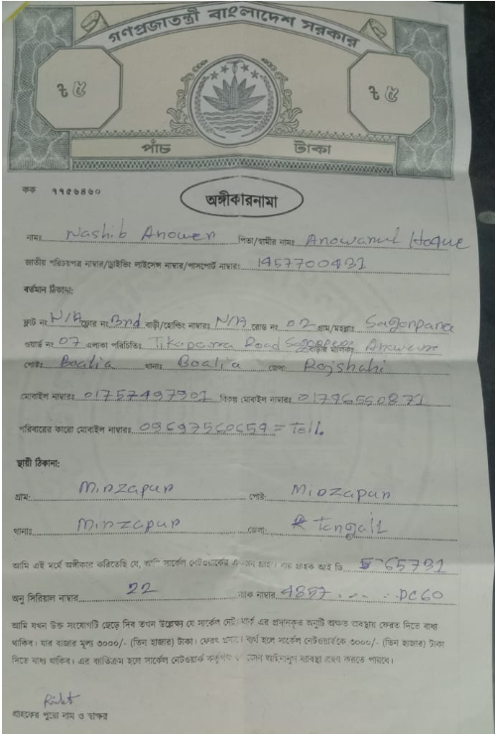 গণপ্রজাতন্ত্রী বাংলাদেশ সরকার
৳ ৫ ৳ ৫
পাঁচ টাকা
কক ৭৭৫৬৪৬০
অঙ্গীকারনামা
নামঃ Nashib Anower পিতা/স্বামীর নামঃ Anowarul Hoque
জাতীয় পরিচয়পত্র নাম্বার/ড্রাইভিং লাইসেন্স নাম্বার/পাসপোর্ট নাম্বারঃ 1957700431
বর্তমান ঠিকানাঃ
ফ্লাট নং N/A ফ্লোর নং 3rd বাড়ী/হোল্ডিং নাম্বারঃ N/A রোড নং 02 গ্রাম/মহল্লাঃ Sagorpara
ওয়ার্ড নং 07 এলাকা পরিচিতিঃ Tikapara Road
পোষ্টঃ Boalia থানাঃ Boalia জেলাঃ Rajshahi
মোবাইল নাম্বারঃ 01757497901 বিকল্প মোবাইল নাম্বারঃ 01796560871
পরিবারের কারো মোবাইল নাম্বারঃ 09697560659 = Tell.
স্থায়ী ঠিকানা:
গ্রাম: Mirzapur পোষ্ট: Mirzapur
থানাঃ Mirzapur জেলা: Tangail
আমি এই মর্মে অঙ্গীকার করিতেছি যে, আমি সার্কেল নেটওয়ার্কের গ্রাহক আই ডি 65731
অনু সিরিয়াল নাম্বার 22 ম্যাক নাম্বার 4857 ... DC60
আমি যখন উক্ত সংযোগটি ছেড়ে দিব তখন উল্লেখ্য যে সার্কেল নেটওয়ার্ক এর প্রদানকৃত অনুটি অক্ষত অবস্থায় ফেরত দিতে বাধ্য
থাকিব। যার বাজার মূল্য ৩০০০/- (তিন হাজার) টাকা। ফেরত ব্যর্থ হলে সার্কেল নেটওয়ার্ককে ৩০০০/- (তিন হাজার) টাকা
দিতে বাধ্য থাকিব। এর ব্যতিক্রম হলে সার্কেল নেটওয়ার্ক কর্তৃপক্ষ আইনানুগ ব্যবস্থা গ্রহণ করতে পারবে।
গ্রাহকের পুরো নাম ও স্বাক্ষর